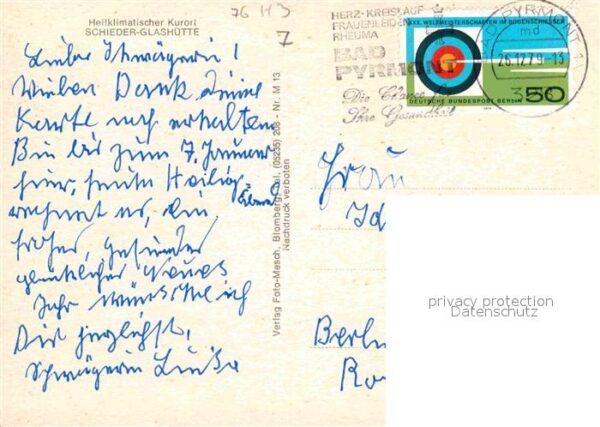 Heilklimatischer Kurort
SCHIEDER-GLASHÜTTE
76 H3
7
Liebe Schwägerin!
Vielen Dank Deine
Karte noch erhalten
Bin bis zum 7. Januar
hier, heute Heilig
Abend
ein
froher, gesunder
glücklicher Neues
Jahr wünsche ich
Dir herzlichst,
Schwägerin Luise
Verlag Foto-Mesch, Blomberg, Tel. (05235) 208 - Nr. M 13
Nachdruck verboten
HERZ-KREISLAUF
FRAUENLEIDEN
RHEUMA
BAD
PYRMONT
Die Chance für
Ihre Gesundheit
XXX. WELTMEISTERSCHAFTEN IM BOGENSCHIESSEN
DEUTSCHE BUNDESPOST BERLIN
50
BAD PYRMONT 1
md
26.12.79-13
Frau
Id
Berlin
Ro
privacy protection
Datenschutz